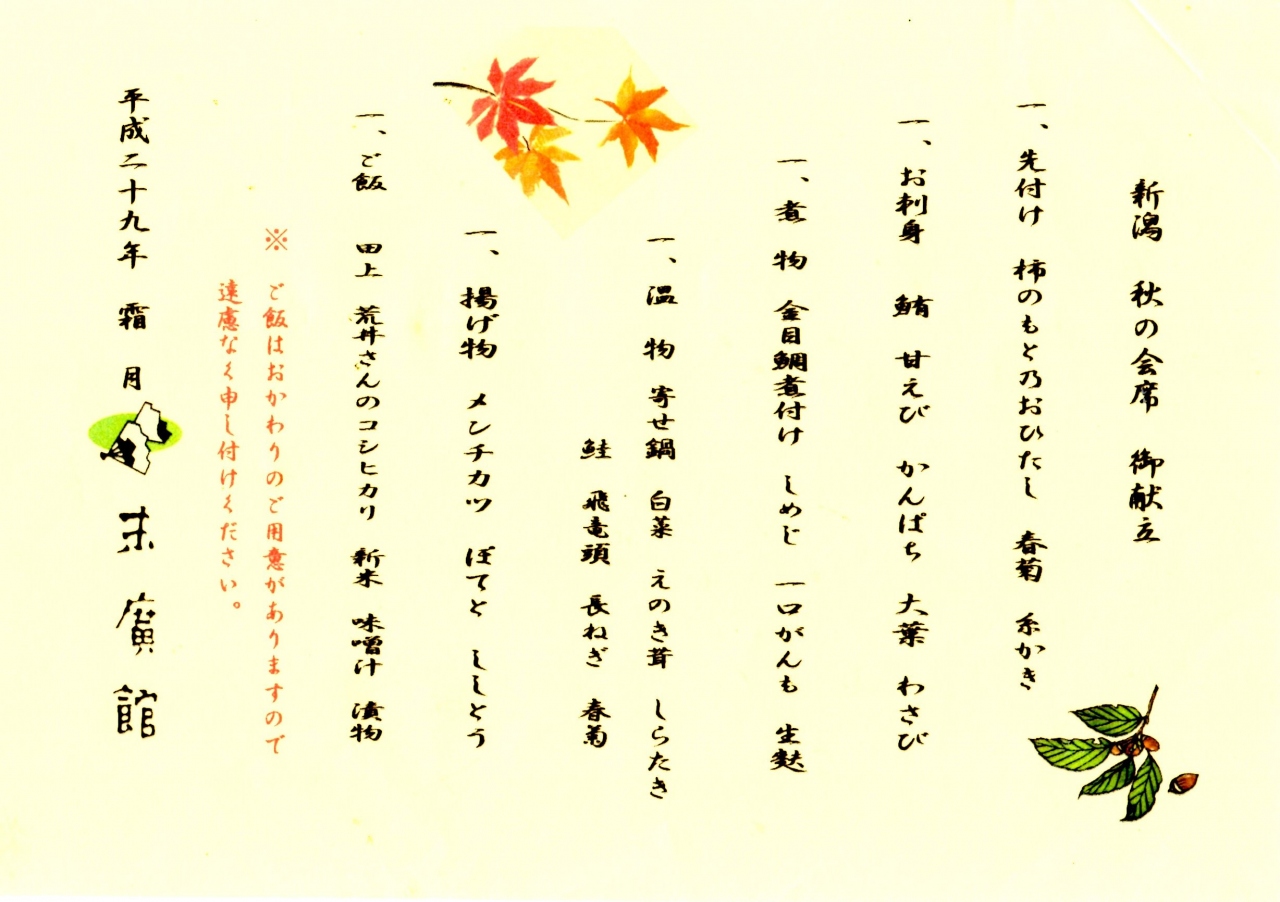 新潟 秋の会席 御献立
一、先付け 柿のもと乃おひたし 春菊 糸かき
一、お刺身 鮪 甘えび かんぱち 大葉 わさび
一、煮物 金目鯛煮付け しめじ 一口がんも 生麩
一、温物 寄せ鍋 白菜 えのき茸 しらたき
鮭 飛竜頭 長ねぎ 春菊
一、揚げ物 メンチカツ ぽてと ししとう
一、ご飯 田上 荒井さんのコシヒカリ 新米 味噌汁 漬物
※ ご飯はおかわりのご用意がありますので
遠慮なく申し付けください。
平成二十九年 霜月 末廣館